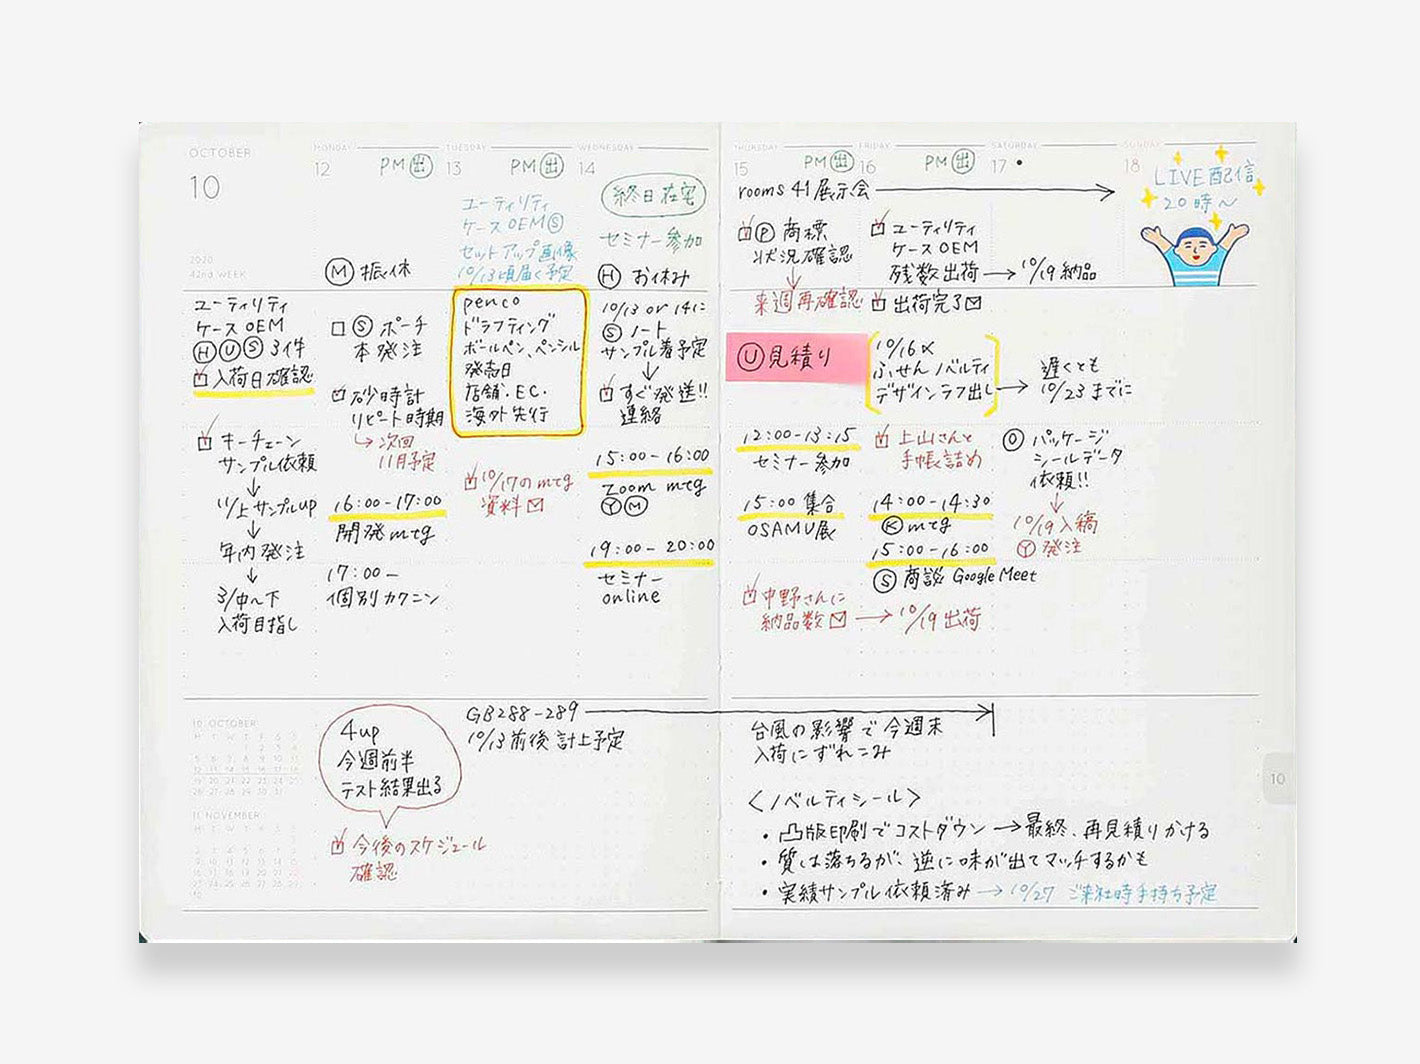 OCTOBER
10
2020
42nd WEEK
ユーティリティ
ケース OEM
Ⓗ Ⓤ Ⓢ 3件
入荷日確認
キーチェーン
サンプル依頼
↓
11/上 サンプルup
↓
年内発注
↓
3/中〜下
入荷目指し
10 OCTOBER
11 NOVEMBER
MONDAY
12
PM 出
Ⓜ 振休
Ⓢ ポーチ
本発注
砂時計
リピート時期
→次回
11月予定
16:00-17:00
開発 mtg
17:00-
個別カクニン
4up
今週前半
テスト結果出る
今後のスケジュール
確認
TUESDAY
13
PM 出
ユーティリティ
ケース OEM Ⓢ
セットアップ画像
10/13頃届く予定
penco
ドラフティング
ボールペン、ペンシル
発売日
店舗・EC・
海外先行
10/17の mtg
資料
GB288-289
10/13前後 計上予定
WEDNESDAY
14
終日在宅
セミナー参加
Ⓗ お休み
10/13 or 14に
Ⓢ ノート
サンプル着予定
↓
すぐ発送!!
連絡
15:00-16:00
Zoom mtg
Ⓨ Ⓜ
19:00-20:00
セミナー
online
THURSDAY
15
PM 出
rooms 41 展示会
Ⓟ 商標
状況確認
↓
来週再確認
Ⓤ 見積り
12:00-13:15
セミナー参加
15:00 集合
OSAMU展
中野さんに
納品数 → 10/19 出荷
FRIDAY
16
PM 出
ユーティリティ
ケース OEM
残数出荷 → 10/19 納品
出荷完了
10/16 〆
ふせんノベルティ
デザインラフ出し →
遅くとも
10/23までに
上山さんと
手帳詰め
14:00-14:30
Ⓚ mtg
15:00-16:00
Ⓢ 商談 Google Meet
SATURDAY
17
Ⓞ パッケージ
シールデータ
依頼!!
↓
10/19 入稿
Ⓨ 発注
SUNDAY
18
LIVE配信
20時〜
台風の影響で今週末
入荷にずれこみ
<ノベルティシール>
・凸版印刷でコストダウン → 最終、再見積りかける
・質は落ちるが、逆に味が出てマッチするかも
・実績サンプル依頼済み → 10/27 ご来社時手持ち予定
10